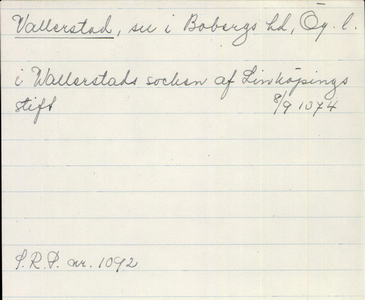 Vallerstad, sn i Bobergs hd, Ög. l.
i Wallerstads socken af Linköpings
stift 8/9 1074
S.R.P. nr. 1092